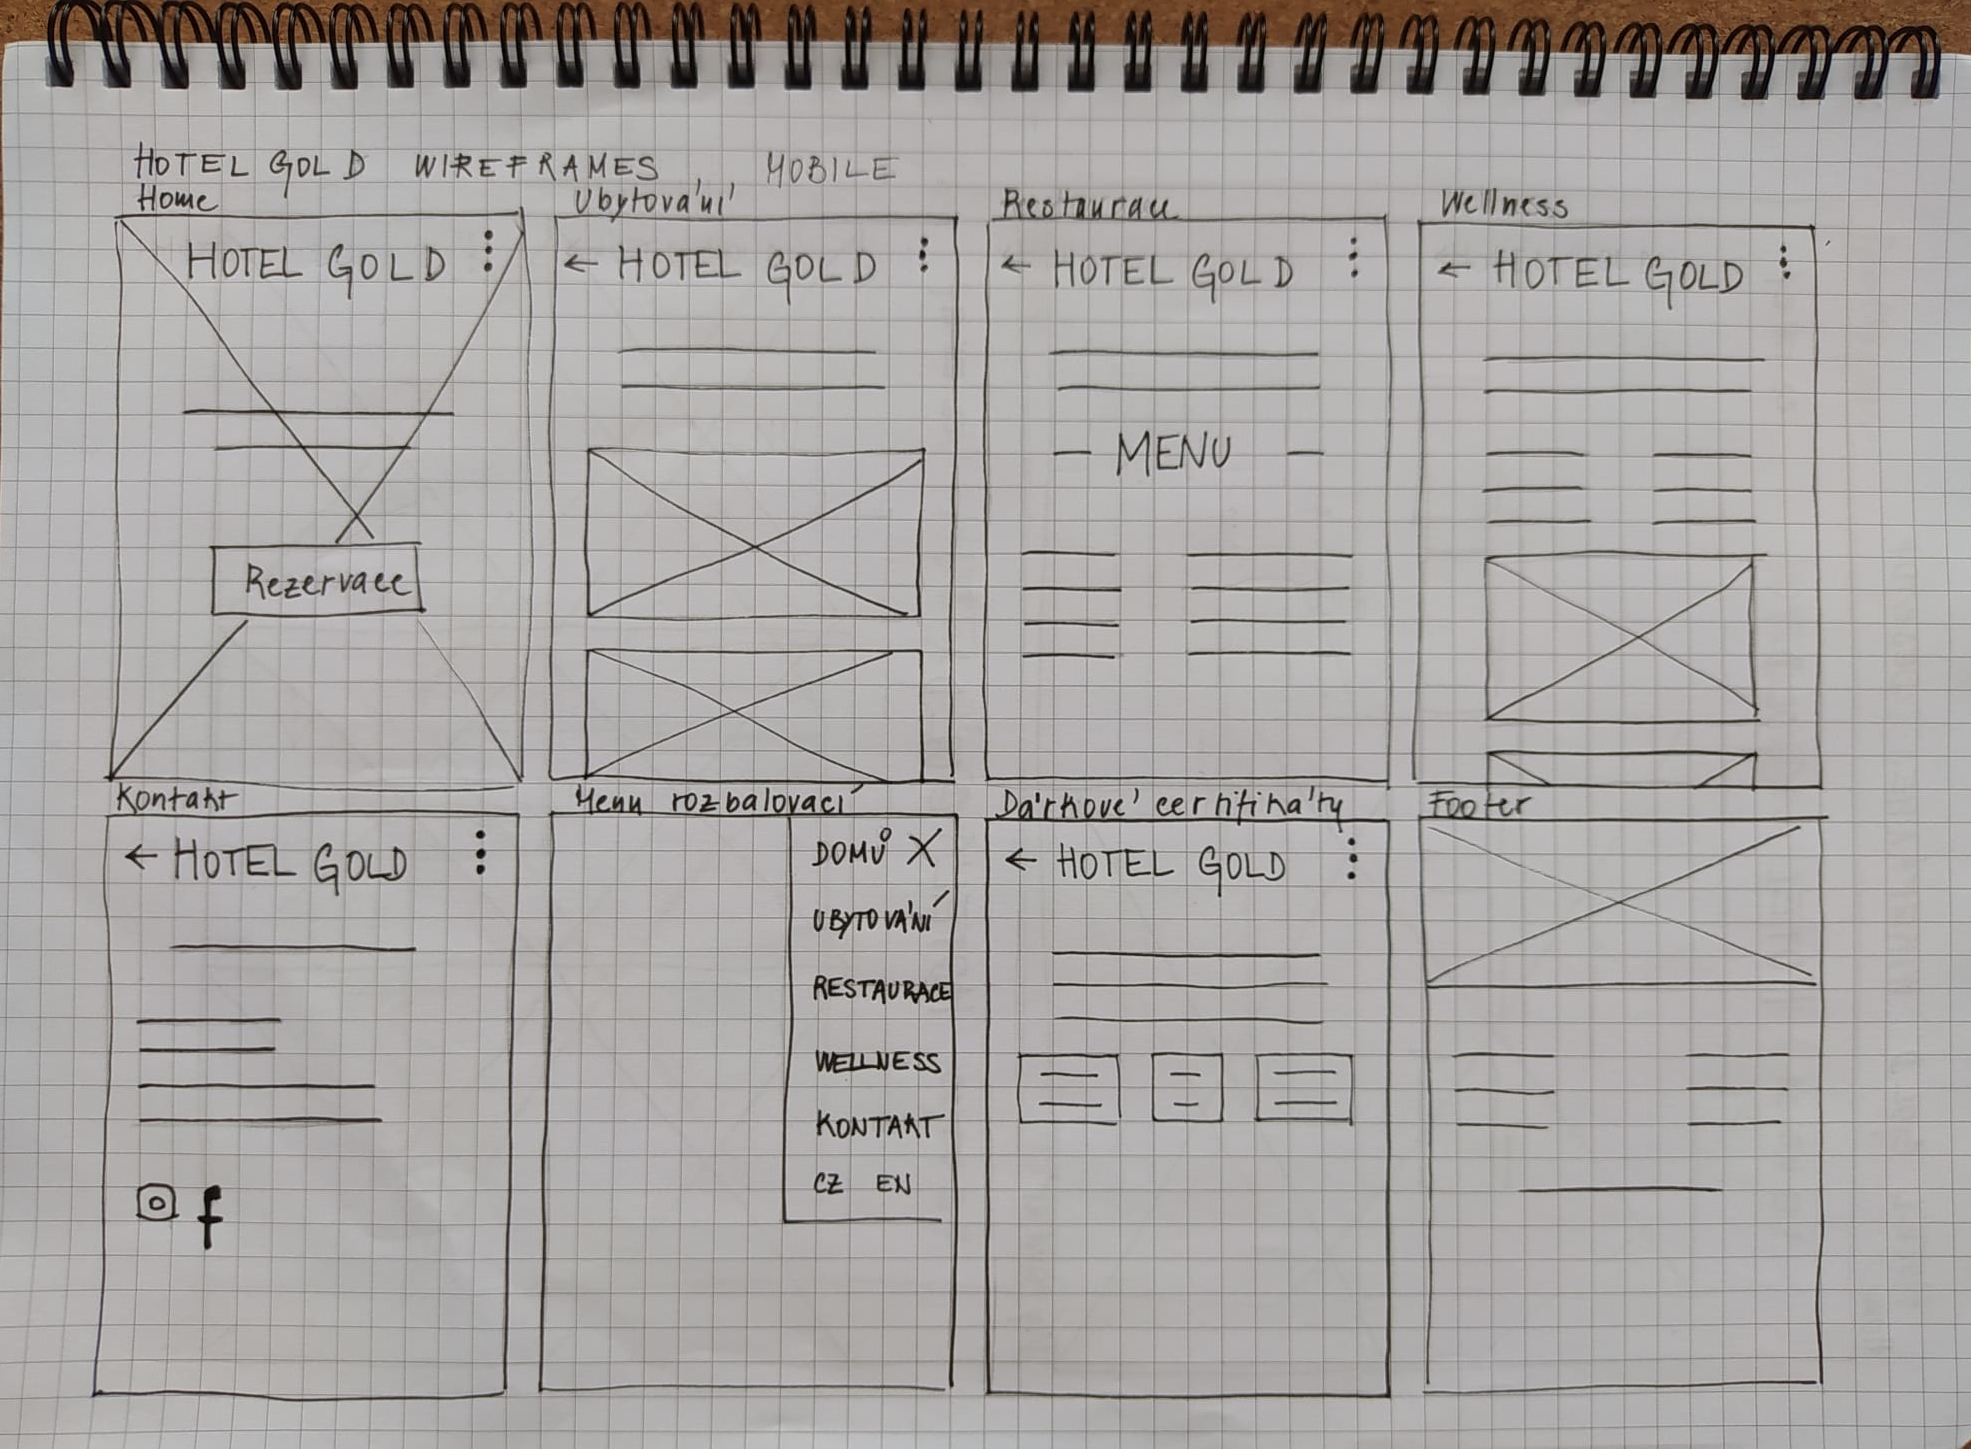 HOTEL GOLD WIREFRAMES, MOBILE
Home
HOTEL GOLD
Rezervace
Ubytování
← HOTEL GOLD
Restaurace
← HOTEL GOLD
— MENU —
Wellness
← HOTEL GOLD
Kontakt
← HOTEL GOLD
f
Menu rozbalovací
DOMŮ X
UBYTOVÁNÍ
RESTAURACE
WELLNESS
KONTAKT
CZ EN
Dárkové certifikáty
← HOTEL GOLD
Footer